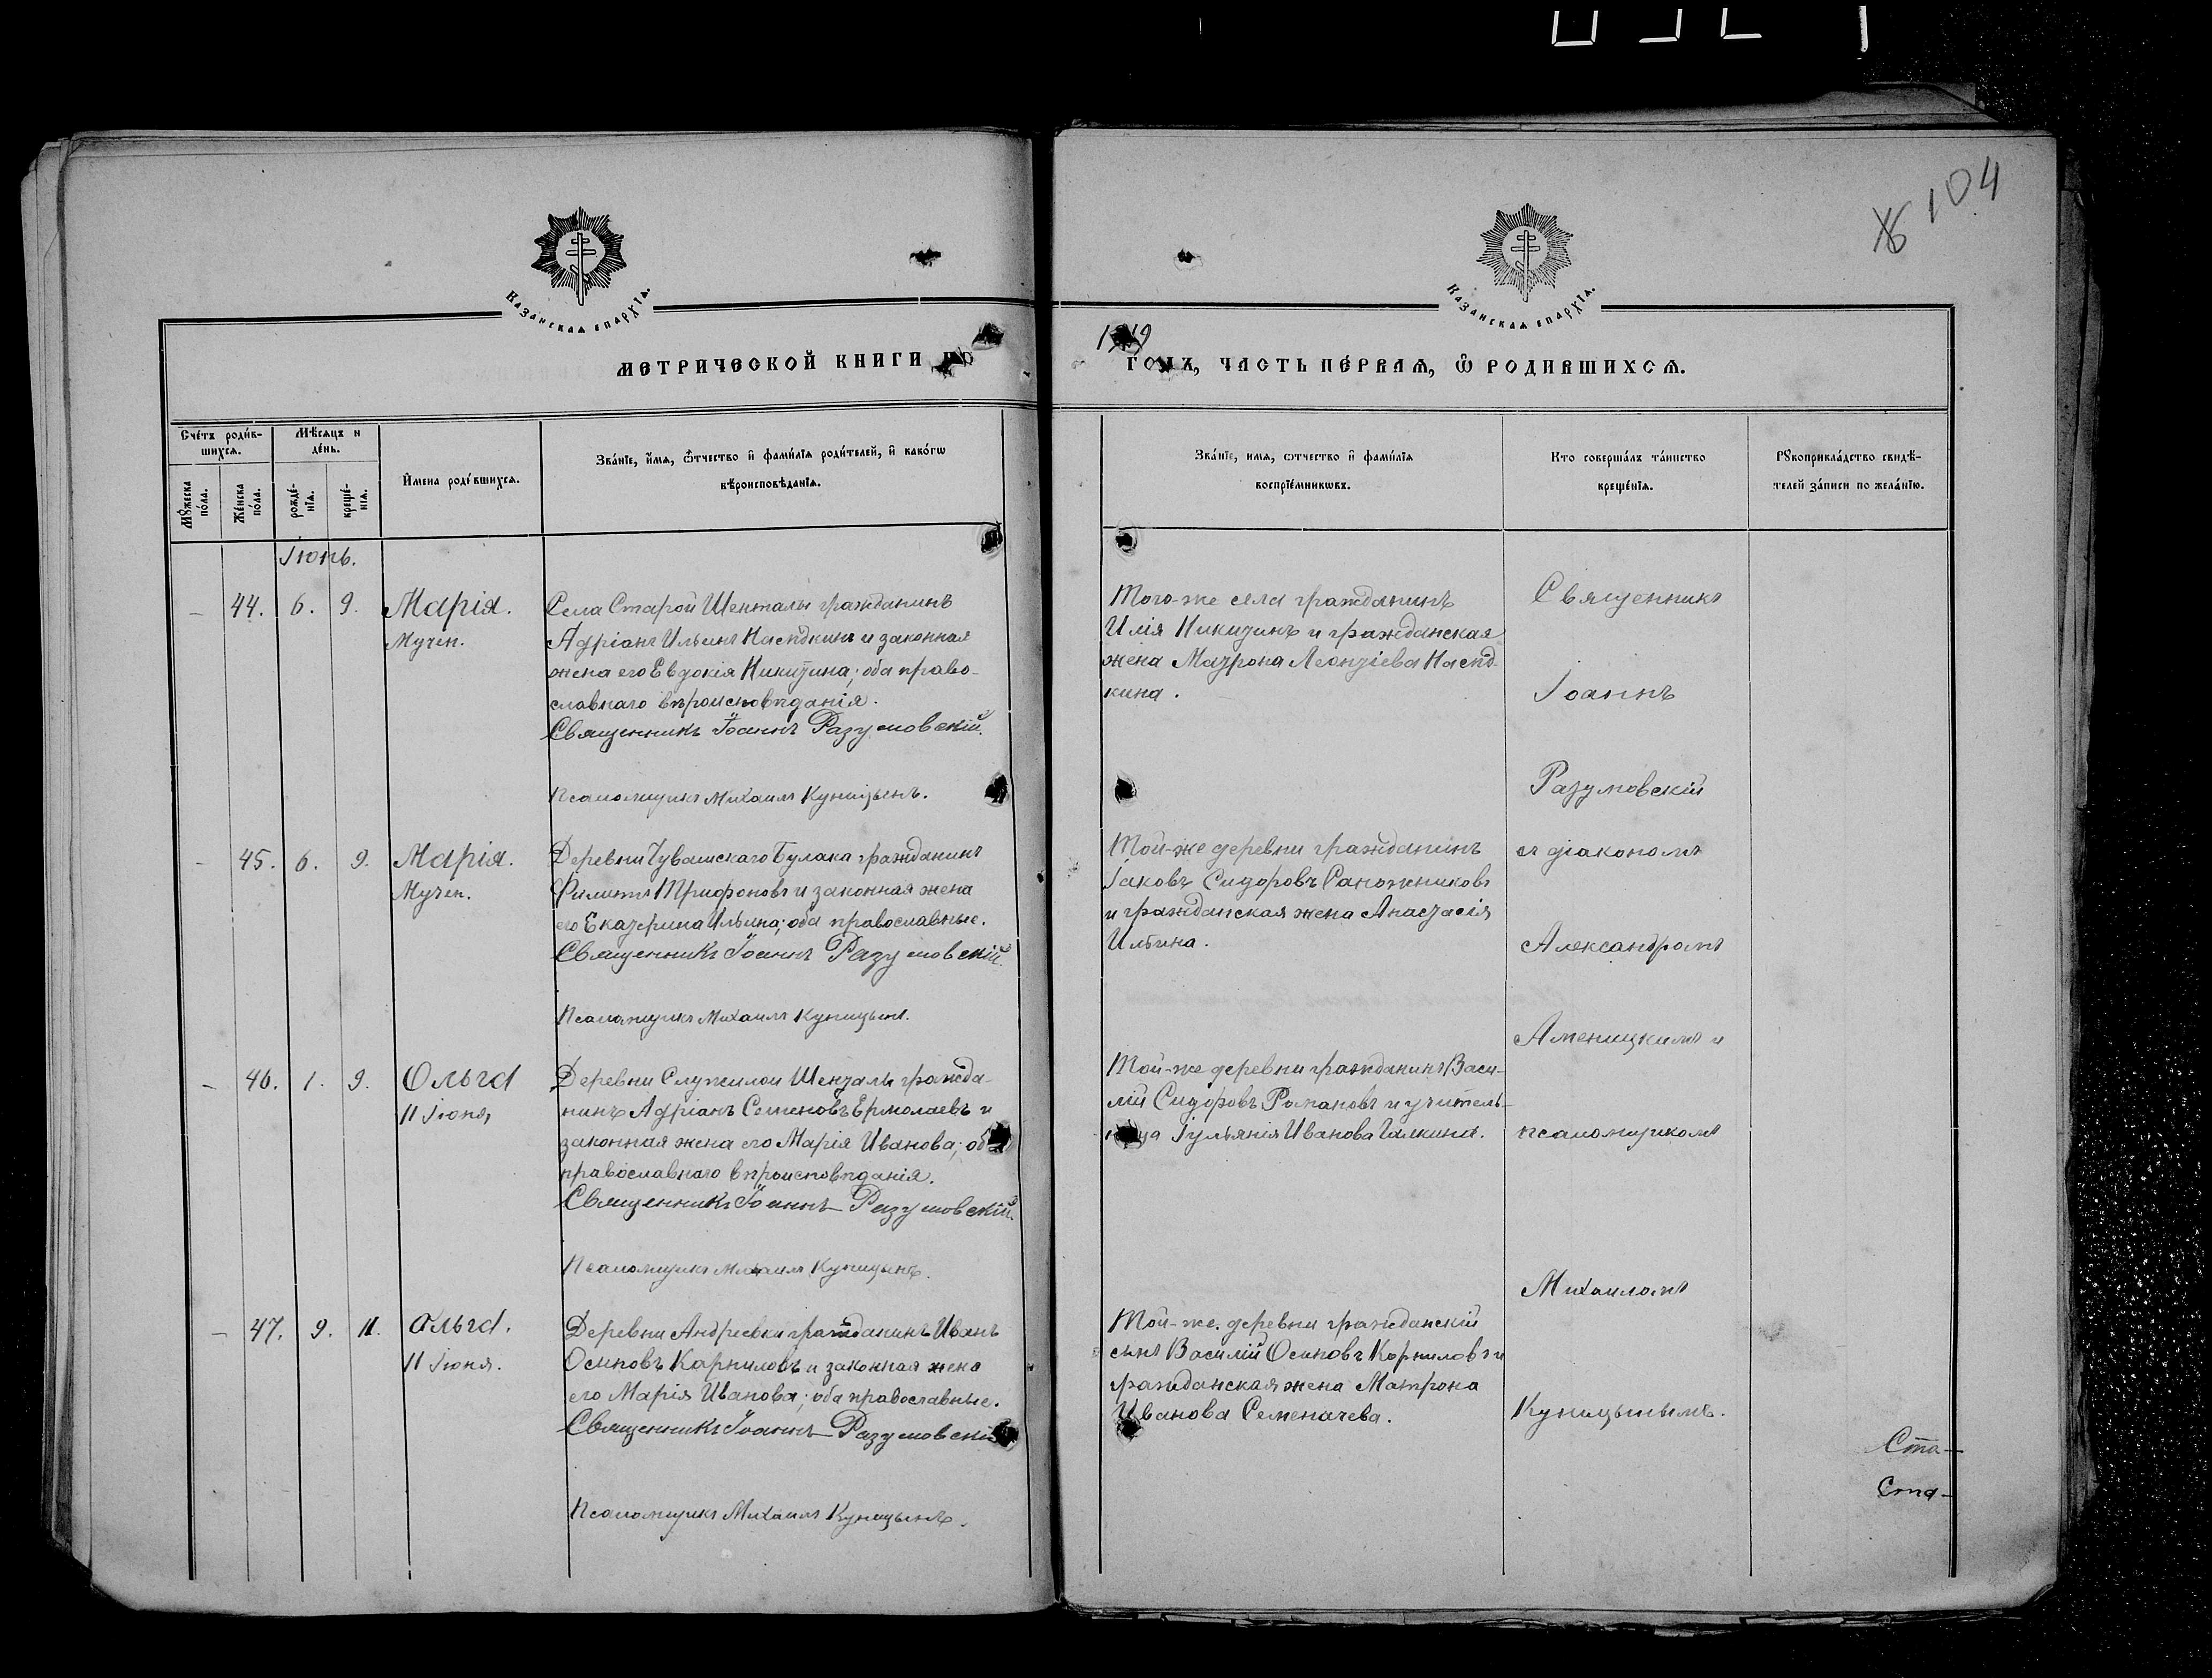 104
Казанская епархїя.
Казанская епархїя.
метрической книги
1919
годъ, часть пе́рвая, ѡ҆ родившихся.
Сче́тъ роди́в-
шихся.
Мѣсяцъ и
де́нь.
Мꙋжеска
по́ла.
Же́нска
по́ла.
рожде́-
нїя.
креще́-
нїя.
И҆мена роди́вшихся.
Зва́нїе, и҆́мя, ѻ҆́тчество и҆ фами́лїя роди́телей, и҆ како́гѡ
вѣроисповѣ́данїя.
Зва́нїе, имя, отчество и҆ фами́лїя
воспрїе́мниковъ.
Кто соверша́лъ та́инство
креще́нїя.
Рꙋкоприкла́дство свидѣ́-
телей за́писи по жела́нїю.
Іюнь.
44. 6. 9. Марія.
Мучен.
Села Старой Шенталы гражданинъ
Адріанъ Ильинъ Наѣдкинъ и законная
жена его Евдокія Никитина; оба право-
славнаго вѣроисповѣданія.
Священникъ Іоаннъ Разумовскій.
Псаломщикъ Михаилъ Куницынъ.
Того-же села гражданинъ
Илія Никитинъ и гражданская
жена Матрона Леонтіева Наѣд-
кина.
Священникъ
Іоаннъ
Разумовскій
45. 6. 9. Марія.
Мучен.
Деревни Чувашскаго Булака гражданинъ
Филиппъ Трифоновъ и законная жена
его Екатерина Ильина; оба православные.
Священникъ Іоаннъ Разумовскій.
Псаломщикъ Михаилъ Куницынъ.
Той-же деревни гражданинъ
Іаковъ Сидоровъ Сапожниковъ
и гражданская жена Анастасія
Ильина.
съ діакономъ
Александромъ
Аменицкимъ и
46. 1. 9. Ольга
11 Іюня,
Деревни Служилой Шенталы гражда-
нинъ Адріанъ Семеновъ Ермолаевъ и
законная жена его Марія Иванова; оба
православнаго вѣроисповѣданія.
Священникъ Іоаннъ Разумовскій.
Псаломщикъ Михаилъ Куницынъ.
Той-же деревни гражданинъ Васи-
лій Сидоровъ Романовъ и учитель-
ница Іульянія Иванова Галкина.
псаломщикомъ
Михаиломъ
47. 9. 11. Ольга.
11 Іюня.
Деревни Андреевки гражданинъ Иванъ
Осиповъ Корниловъ и законная жена
его Марія Иванова; оба православные.
Священникъ Іоаннъ Разумовскій
Псаломщикъ Михаилъ Куницынъ.
Той-же деревни гражданскій
сынъ Василій Осиповъ Корниловъ и
гражданская жена Матрона
Иванова Семеначева.
Куницынымъ.
Ста-
Ста-